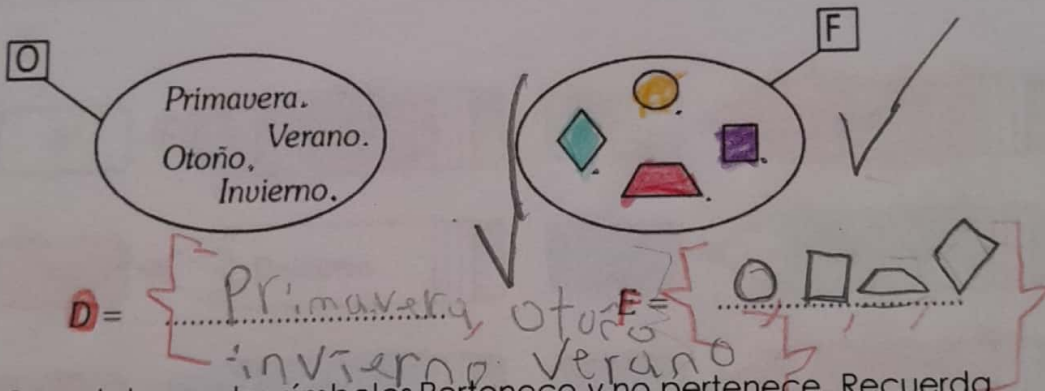 O
F
Primavera.
Verano.
Otoño.
Invierno.
D = Primavera, otoño
invierno verano
E =
Pertenece y no pertenece. Recuerda